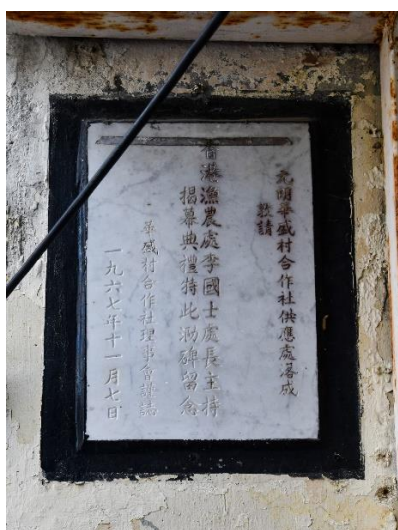 元朗華盛村合作社供應處落成
敦請
香港漁農處李國士處長主持
揭幕典禮特此泐碑留念
華盛村合作社理事會謹誌
一九六七年十一月七日